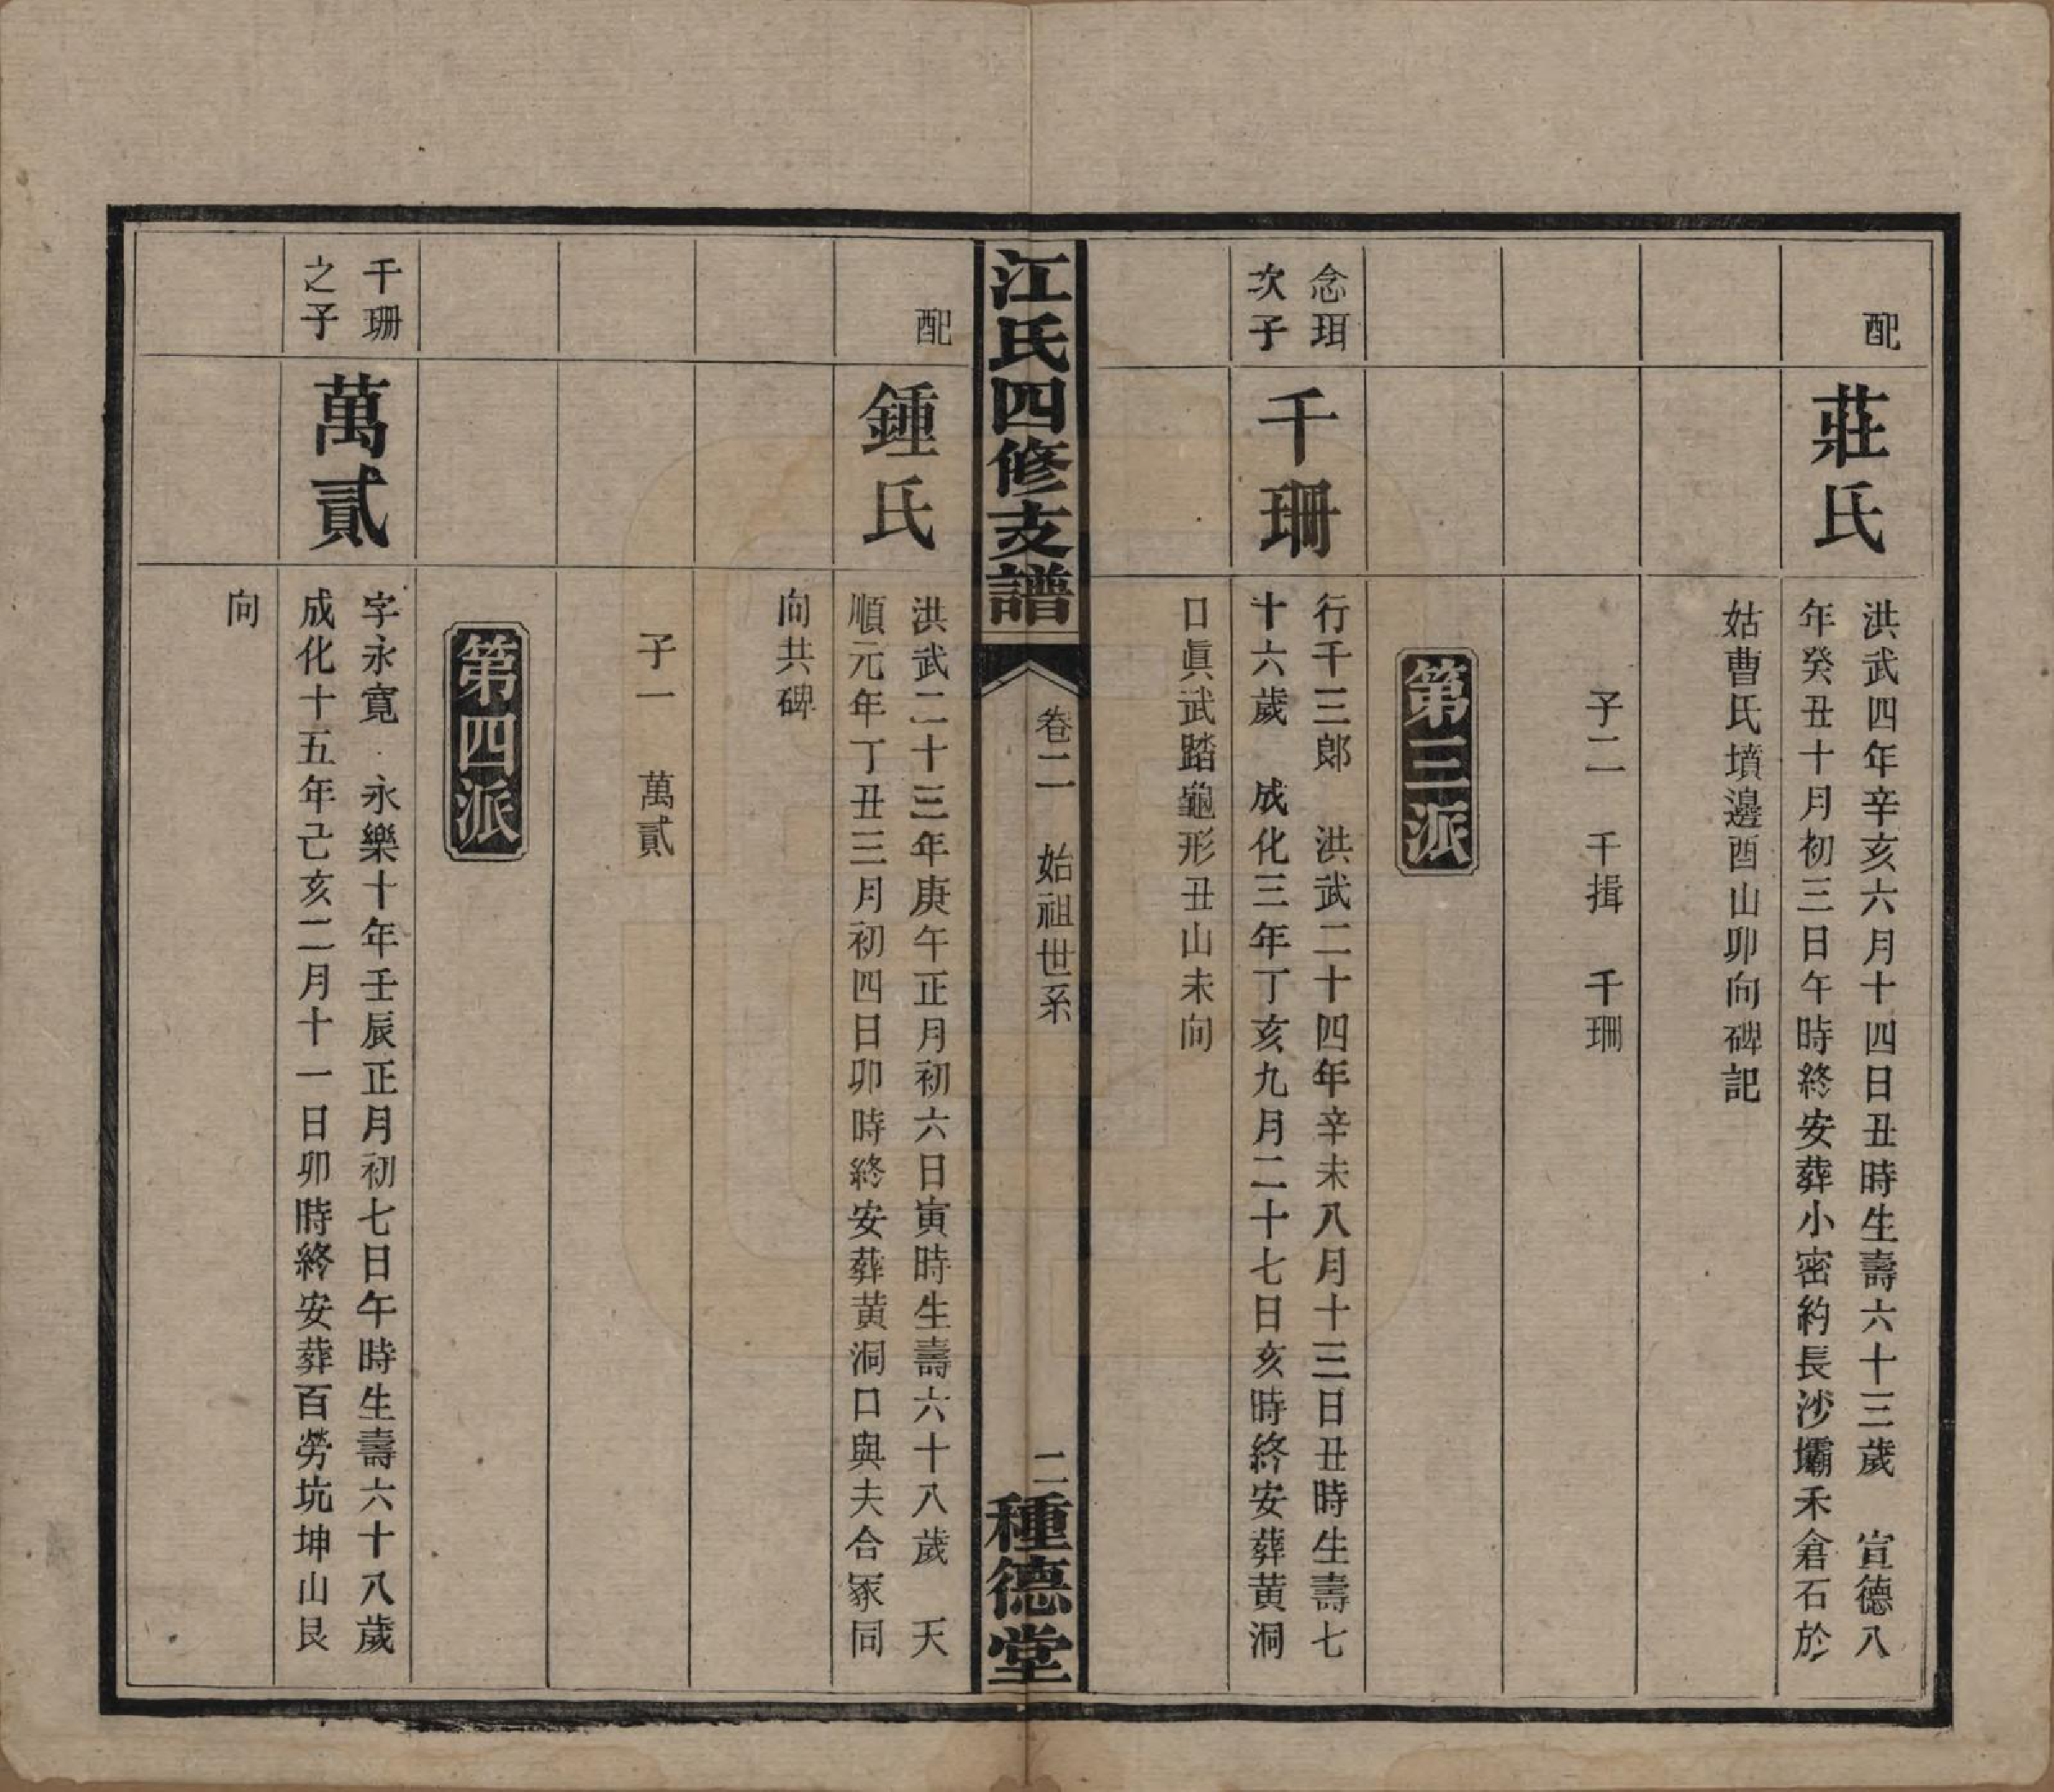 配
莊氏
洪武四年辛亥六月十四日丑時生壽六十三歲 宣德八
年癸丑十月初三日午時終安葬小密約長沙壩禾倉石於
姑曹氏墳邊酉山卯向碑記
子二 千揖 千珊
第三派
念珥
次子
千珊
行千三郎 洪武二十四年辛未八月十三日丑時生壽七
十六歲 成化三年丁亥九月二十七日亥時終安葬黃洞
口眞武踏龜形丑山未向
江氏四修支譜
卷二 始祖世系
二
種德堂
配
鍾氏
洪武二十三年庚午正月初六日寅時生壽六十八歲 天
順元年丁丑三月初四日卯時終安葬黃洞口與夫合冢同
向共碑
子一 萬貳
第四派
千珊
之子
萬貳
字永寬 永樂十年壬辰正月初七日午時生壽六十八歲
成化十五年己亥二月十一日卯時終安葬百勞坑坤山艮
向